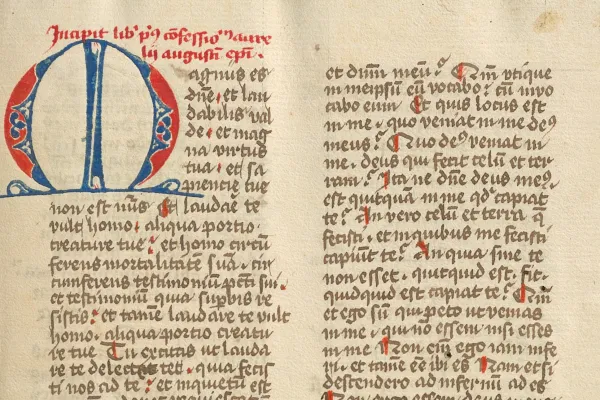 Incipit lib' p'us cōfessionū aure
lii augustini ep̄i.
Magnus es
dn̄e et lau
dabilis val
de et mag
na virtus
tua et sa
piencie tue
non est nūs Et laudare te
vult homo aliqua portio
creature tue et homo circū
ferens mortalitatē suā cir
cumferens testimoniū pccī sui
et testimoniū quia supbis re
sistis et tamē laudare te vult
homo aliqua portio creatu
re tue Tu excitas ut lauda
re te delectet quia fecis
ti nos ad te et inquietū est
et dūm meū Cūm utique
in meipsum eū vocabo cū invo
cabo eum Et quis locus est
in me quo veniat in me de9
meus Quo de9 veniat in
me deus qui fecit celū et ter
ram Ita ne dn̄e deus me9
est quitquā in me qd' capiat
te An vero celū et terra q̄
fecisti et in quibus me fecisti
capiūt te An quia sine te
non esset quitquid est fit
quidquid est capiat te Cūm
et ego sim quid peto ut venias
in me qui nō essem nisi esses
in me Non eim ego iam infe
ri et tamē eciā ibi es Nam etsi
descendero ad infernū ad es